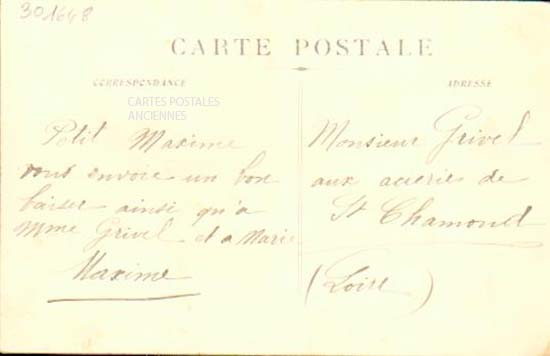 301648
CARTE POSTALE
CORRESPONDANCE
ADRESSE
CARTES POSTALES
ANCIENNES
Petit Maxime
vous envoie un bon
baiser ainsi qu'a
Mme Grivel et a Marie
Maxime
Monsieur Grivel
aux acierie de
St Chamond
(Loire)